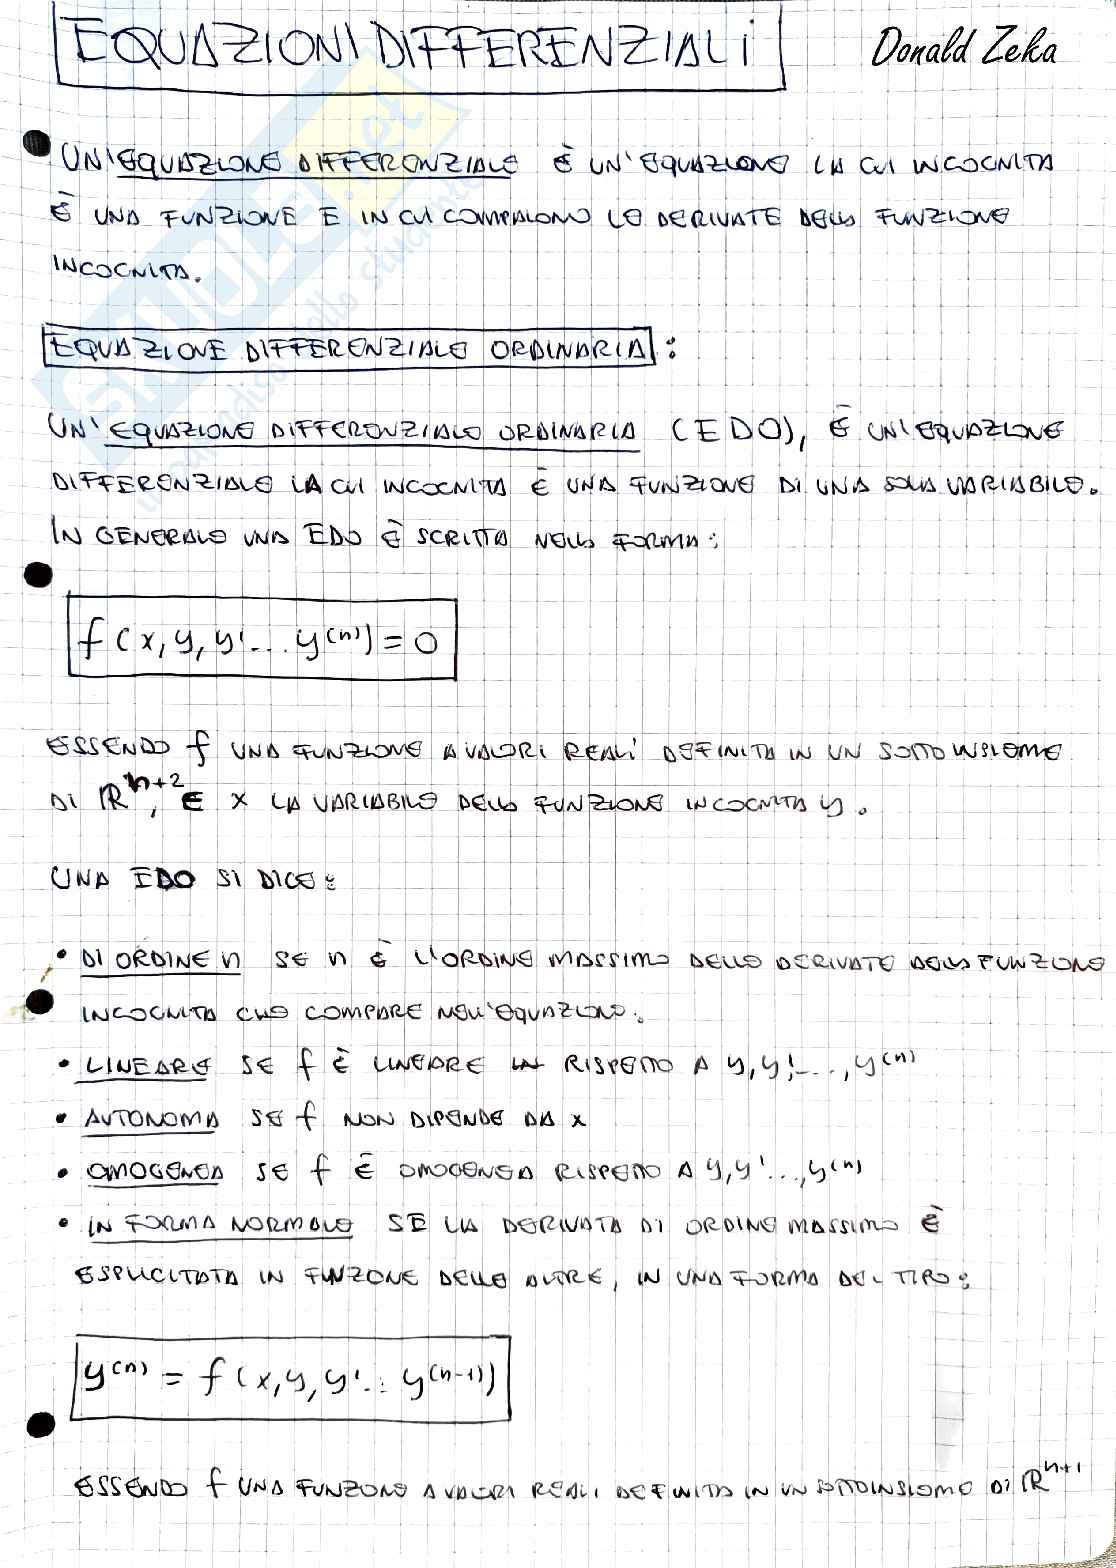 EQUAZIONI DIFFERENZIALI
Donald Zeka
UN'EQUAZIONE DIFFERENZIALE È UN'EQUAZIONE LA CUI INCOGNITA
È UNA FUNZIONE E IN CUI COMPAIONO LE DERIVATE DELLA FUNZIONE
INCOGNITA.
EQUAZIONE DIFFERENZIALE ORDINARIA:
UN'EQUAZIONE DIFFERENZIALE ORDINARIA (EDO), È UN'EQUAZIONE
DIFFERENZIALE LA CUI INCOGNITA È UNA FUNZIONE DI UNA SOLA VARIABILE.
IN GENERALE UNA EDO È SCRITTA NELLA FORMA:
f(x, y, y'... y⁽ⁿ⁾) = 0
ESSENDO f UNA FUNZIONE A VALORI REALI DEFINITA IN UN SOTTOINSIEME
DI ℝⁿ⁺², E x LA VARIABILE DELLA FUNZIONE INCOGNITA y.
UNA EDO SI DICE:
• DI ORDINE n SE n È L'ORDINE MASSIMO DELLE DERIVATE DELLA FUNZIONE
INCOGNITA CHE COMPARE NELL'EQUAZIONE.
• LINEARE SE f È LINEARE RISPETTO A y, y', ..., y⁽ⁿ⁾
• AUTONOMA SE f NON DIPENDE DA x
• OMOGENEA SE f È OMOGENEA RISPETTO A y, y'..., y⁽ⁿ⁾
• IN FORMA NORMALE SE LA DERIVATA DI ORDINE MASSIMO È
ESPLICITATA IN FUNZONE DELLE ALTRE, IN UNA FORMA DEL TIPO:
y⁽ⁿ⁾ = f(x, y, y'... y⁽ⁿ⁻¹⁾)
ESSENDO f UNA FUNZONE A VALORI REALI DEFINITA IN UN SOTTOINSIEME DI ℝⁿ⁺¹